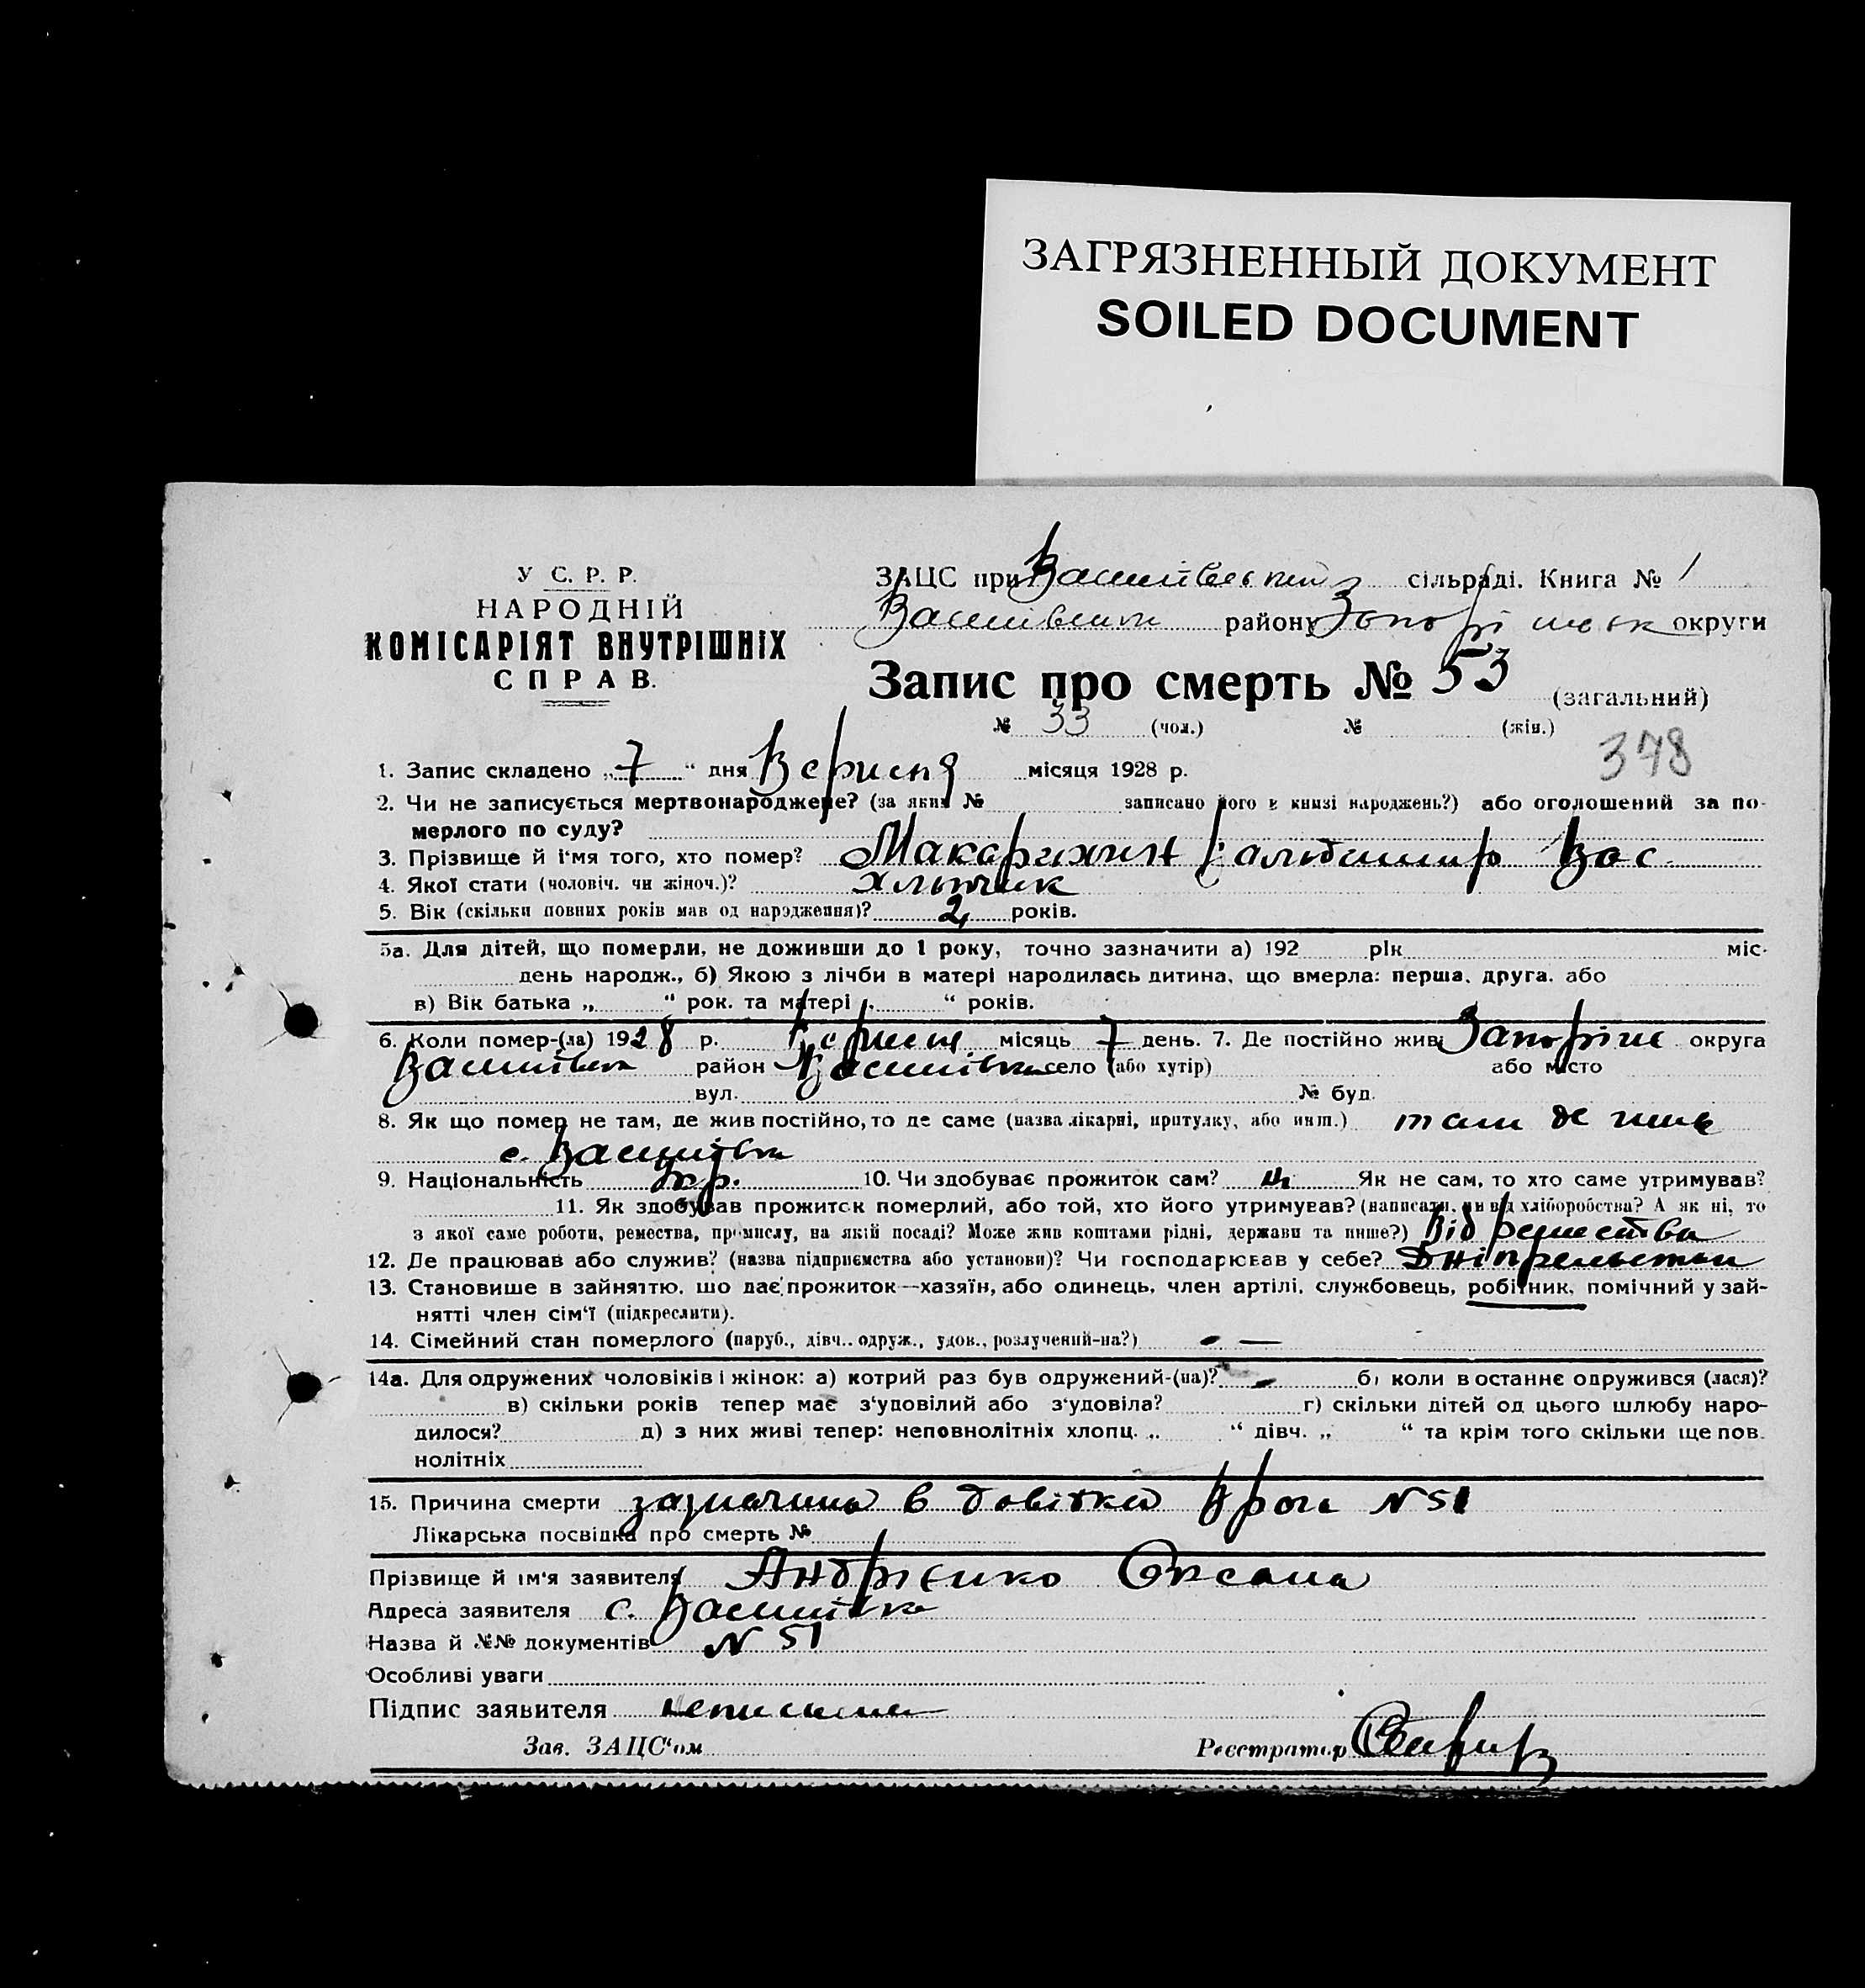 ЗАГРЯЗНЕННЫЙ ДОКУМЕНТ
SOILED DOCUMENT
У С. Р. Р.
НАРОДНІЙ
КОМІСАРІЯТ ВНУТРІШНІХ
СПРАВ.
ЗАЦС при сільраді. Книга № 1
району округи
Запис про смерть № 53 (загальний)
№ 33 (чол.) № (жін.)
378
1. Запис складено „7“ дня Вересня місяця 1928 р.
2. Чи не записується мертвонароджене? (за яким № записано його в книзі народжень?) або оголошений за по-
мерлого по суду?
3. Прізвище й ім'я того, хто помер? Вас.
4. Якої стати (чоловіч. чи жіноч.)? хлопчик
5. Вік (скільки повних років мав од народження)? 2 років.
5а. Для дітей, що померли, не доживши до 1 року, точно зазначити а) 192 рік міс.
день народж., б) Якою з лічби в матері народилась дитина, що вмерла: перша, друга. або
в) Вік батька „ “ рок. та матері „ “ років.
6. Коли помер-(ла) 1928 р. Вересня місяць 7 день. 7. Де постійно жив Запоріж округа
район село (або хутір) або місто
вул. № буд.
8. Як що помер не там, де жив постійно, то де саме (назва лікарні, притулку, або инш.) там де жив
с. Василівка
9. Національність Укр. 10. Чи здобуває прожиток сам? ні Як не сам, то хто саме утримував?
11. Як здобував прожиток померлий, або той, хто його утримував? (написати, чи від хліборобства? А як ні, то
з якої саме роботи, ремества, промислу, на якій посаді? Може жив коштами рідні, держави та инше?) Від ремества
12. Де працював або служив? (назва підприємства або установи)? Чи господарював у себе?
13. Становище в зайняттю, що дає прожиток—хазяїн, або одинець, член артілі, службовець, робітник, помічний у зай-
нятті член сім'ї (підкреслити).
14. Сімейний стан померлого (паруб., дівч.. одруж., удов., розлучений-на?) —
14а. Для одружених чоловіків і жінок: а) котрий раз був одружений-(на)? — б) коли в останнє одружився (лася)?
в) скільки років тепер має з'удовілий або з'удовіла? г) скільки дітей од цього шлюбу наро-
дилося? д) з них живі тепер: неповнолітніх хлопц. „ “ дівч. „ “ та крім того скільки ще пов.
нолітніх
15. Причина смерти зазначина в довідкі Врача № 51
Лікарська посвідка про смерть №
Прізвище й ім'я заявителя Андрієнко Оксана
Адреса заявителя с. Василівка
Назва й №№ документів № 51
Особливі уваги
Підпис заявителя неписьмен
Зав. ЗАЦС'ом Реєстратор